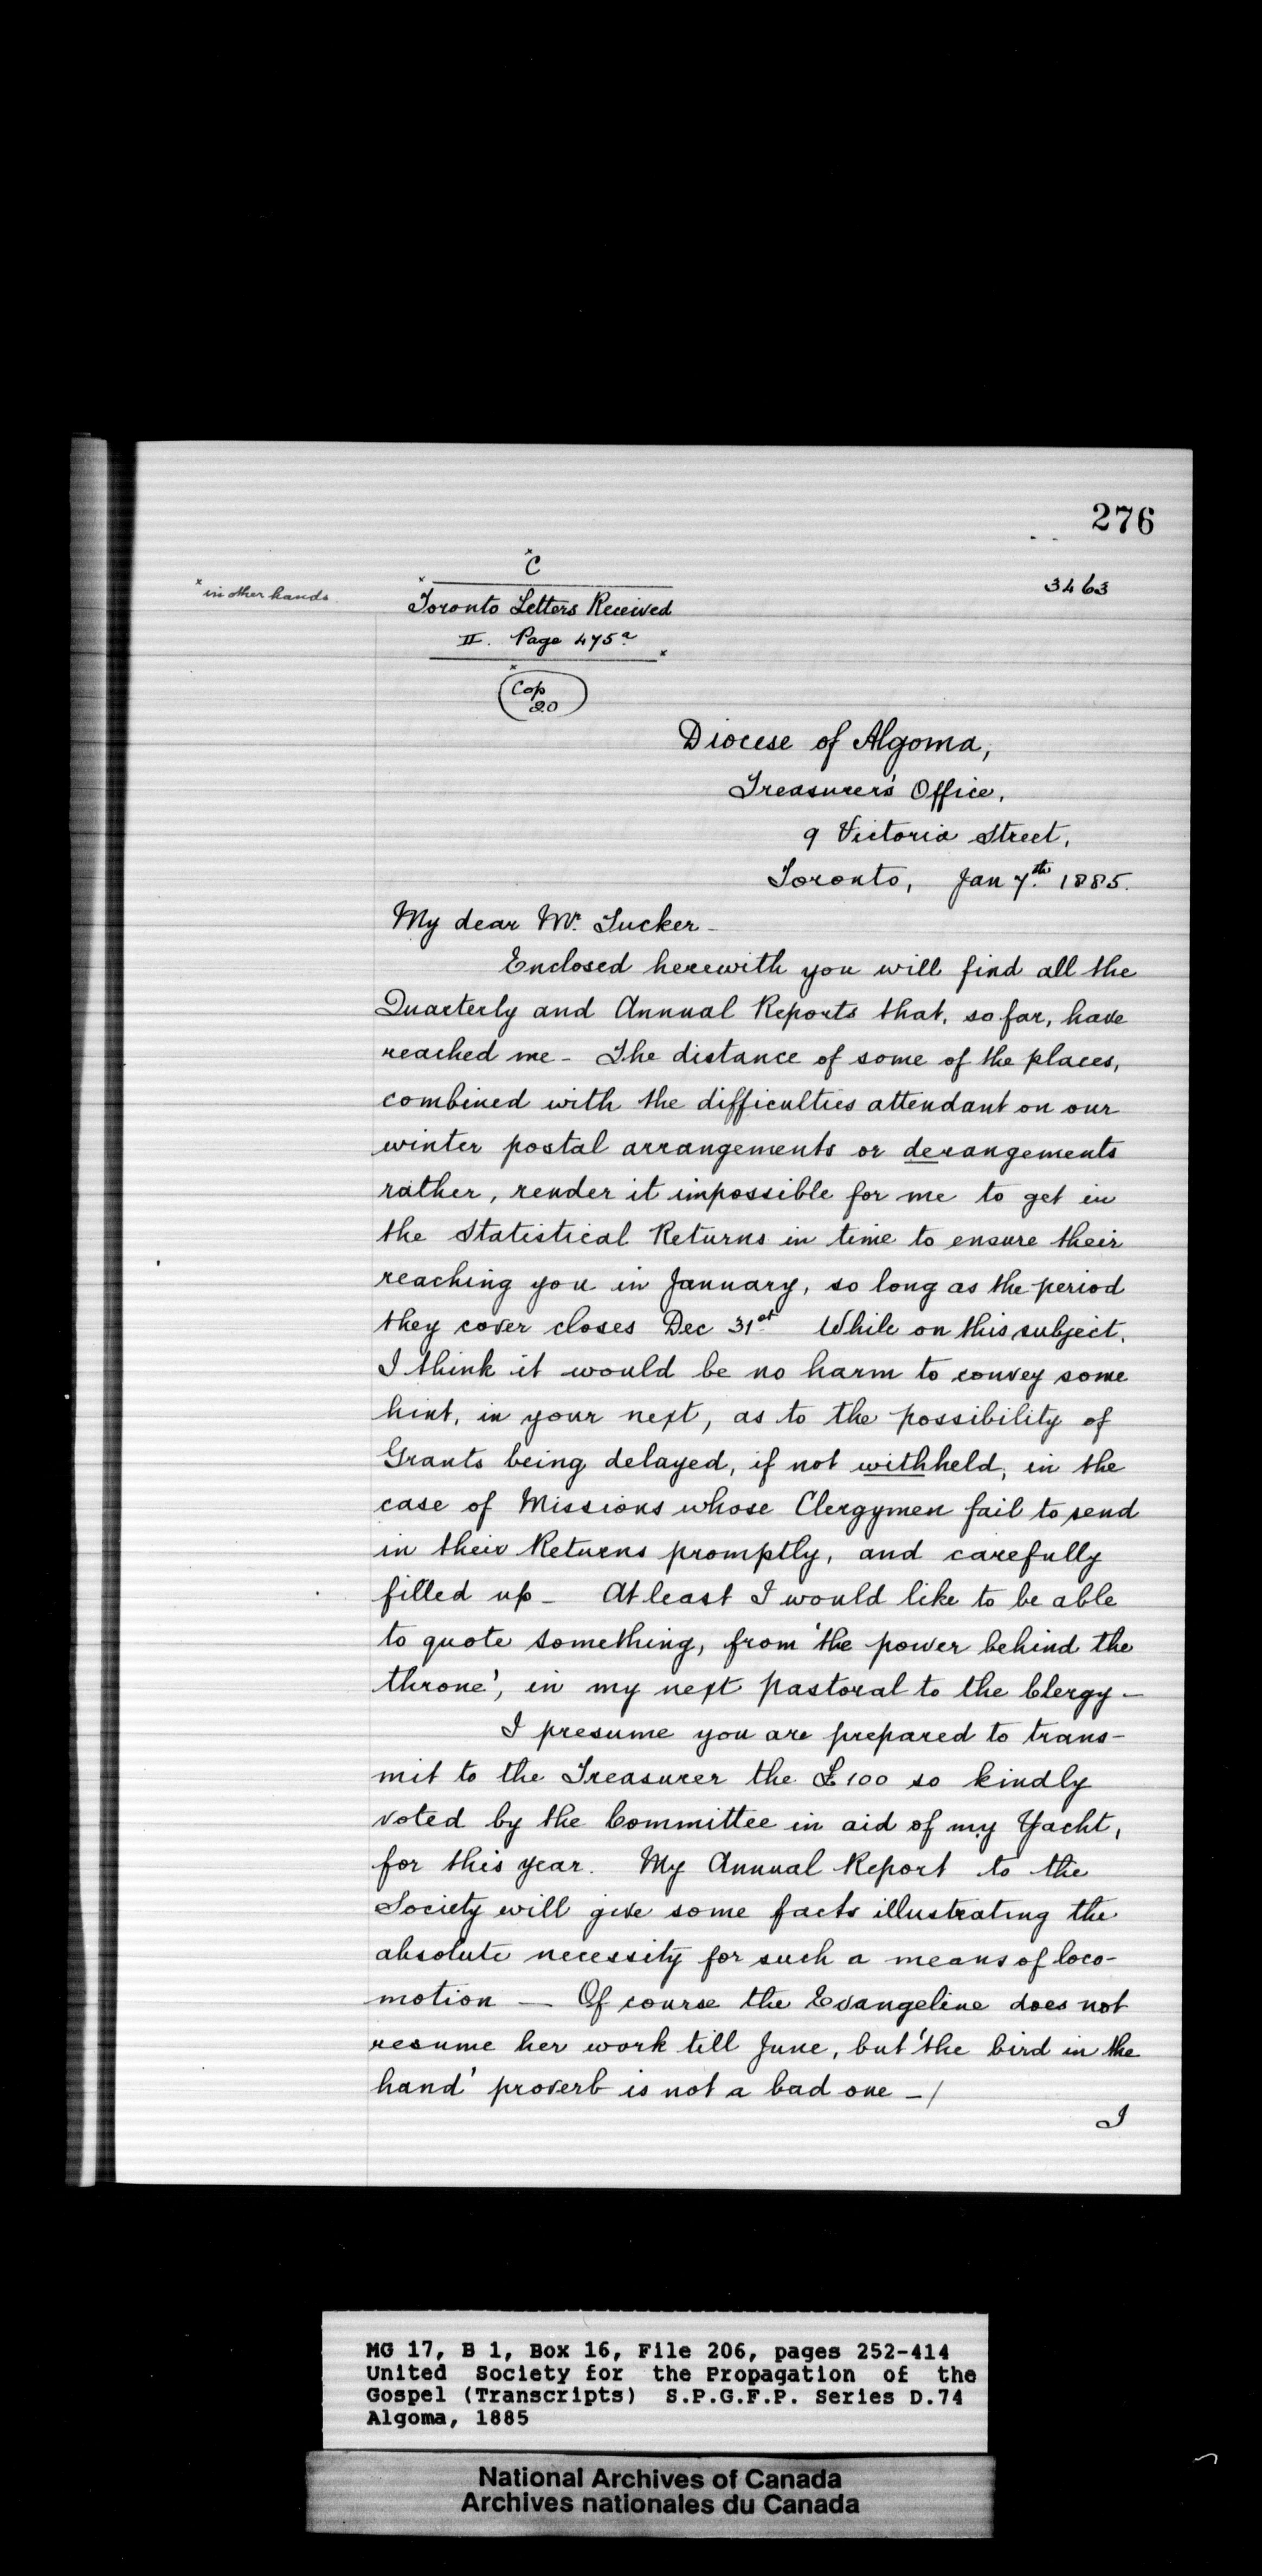 276
C
3463
x in other hands.
Toronto Letters Received
II. Page 475a
Cop
20
Diocese of Algoma,
Treasurer's Office,
9 Victoria Street,
Toronto, Jan 7th 1885.
My dear Mr. Tucker -
Enclosed herewith you will find all the
Quarterly and Annual Reports that, so far, have
reached me - The distance of some of the places,
combined with the difficulties attendant on our
winter postal arrangements or derangements
rather, render it impossible for me to get in
the Statistical Returns in time to ensure their
reaching you in January, so long as the period
they cover closes Dec 31st. While on this subject,
I think it would be no harm to convey some
hint, in your next, as to the possibility of
Grants being delayed, if not withheld, in the
case of Missions whose Clergymen fail to send
in their Returns promptly, and carefully
filled up - At least I would like to be able
to quote something, from 'the power behind the
throne', in my next Pastoral to the Clergy -
I presume you are prepared to trans-
mit to the Treasurer the £100 so kindly
voted by the Committee in aid of my Yacht,
for this year. My Annual Report to the
Society will give some facts illustrating the
absolute necessity for such a means of loco-
motion - Of course the Evangeline does not
resume her work till June, but 'the bird in the
hand' proverb is not a bad one - /
I
MG 17, B 1, Box 16, File 206, pages 252-414
United Society for the Propagation of the
Gospel (Transcripts) S.P.G.F.P. Series D.74
Algoma, 1885
National Archives of Canada
Archives nationales du Canada